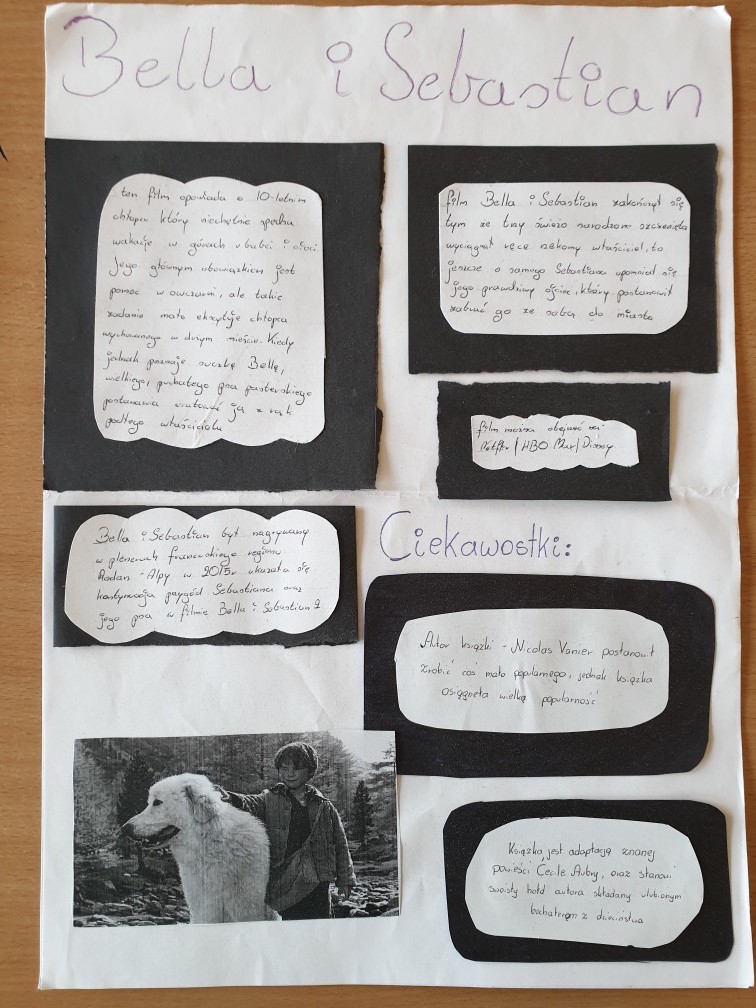 Bella i Sebastian
ten film opowiada o 10-letnim
chłopcu który niechętnie spędza
wakacje w górach u babci i cioci.
Jego głównym obowiązkiem jest
pomoc w owczarni, ale takie
zadanie mało ekscytuje chłopca
wychowanego w dużym mieście. Kiedy
jednak poznaje suczkę Bellę,
wielkiego, puchatego psa pasterskiego
postanawia uratować ją z rąk
podłego właściciela
film Bella i Sebastian zakończył się
tym że trzy świeżo narodzone szczenięta
wyciągnął ręce właściciel, to
jeszcze o samego Sebastiana upomniał się
jego prawdziwy ojciec, który postanowił
zabrać go ze sobą do miasta
film można obejrzeć na:
Netflix / HBO Max / Disney
Bella i Sebastian był nagrywany
w plenerach francuskiego regionu
Rodan-Alpy w 2015r ukazała się
kontynuacja przygód Sebastiana oraz
jego psa w filmie Bella i Sebastian 2
Ciekawostki:
Autor książki - Nicolas Vanier postanowił
zrobić coś mało popularnego, jednak książka
osiągnęła wielką popularność
Książka jest adaptacją znanej
powieści Cecile Aubry, oraz stanowi
swoisty hołd autora składany ulubionym
bohaterom z dzieciństwa